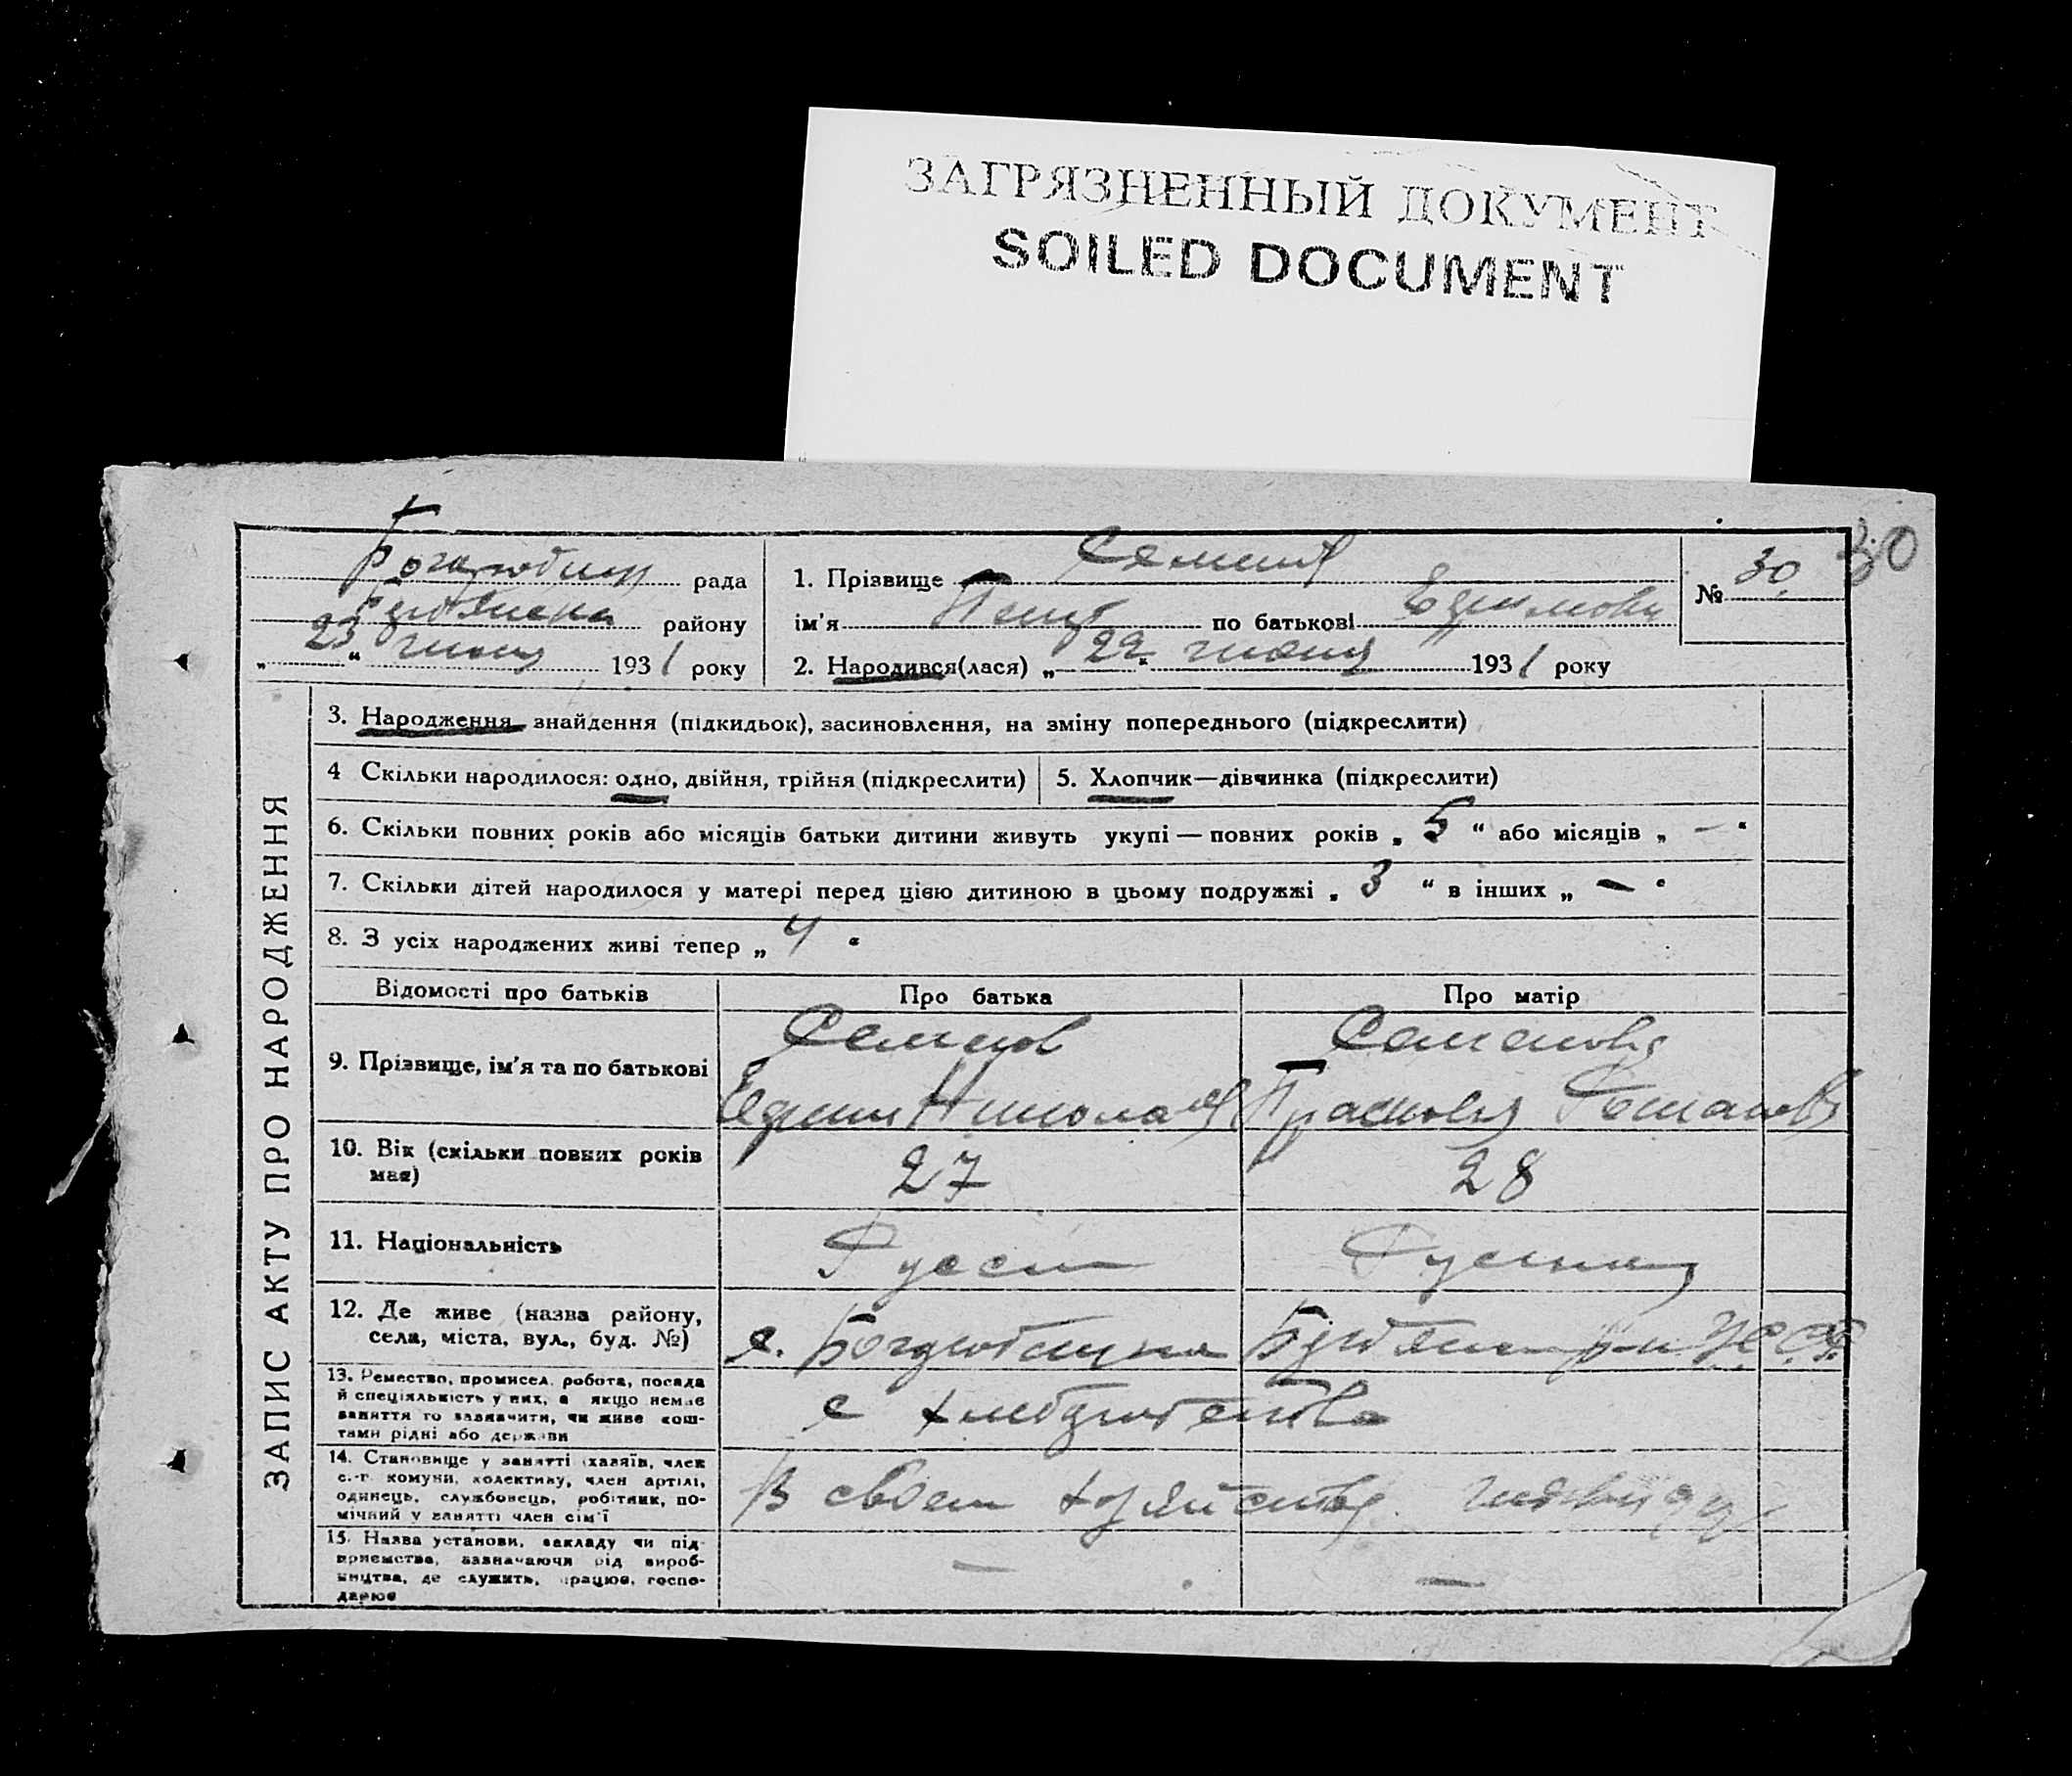 ЗАГРЯЗНЕННЫЙ ДОКУМЕНТ
SOILED DOCUMENT
30
рада
району
„23“ июня 1931 року
1. Прізвище Семенов
ім'я Петр по батькові Ефимович
№ 30
2. Народився(лася) „22“ июня 1931 року
ЗАПИС АКТУ ПРО НАРОДЖЕННЯ
3. Народження, знайдення (підкидьок), засиновлення, на зміну попереднього (підкреслити)
4 Скільки народилося: одно, двійня, трійня (підкреслити)
5. Хлопчик—дівчинка (підкреслити)
6. Скільки повних років або місяців батьки дитини живуть укупі — повних років „ 5 “ або місяців „ — “
7. Скільки дітей народилося у матері перед цією дитиною в цьому подружжі „ 3 “ в інших „ — “
8. З усіх народжених живі тепер „ 4 “
Відомості про батьків
Про батька
Про матір
9. Прізвище, ім'я та по батькові
Семенов
Ефим Николаев
Семенова
Прасковя
10. Вік (скільки повних років
має)
27
28
11. Національність
Русск
Русская
12. Де живе (назва району,
села, міста, вул., буд. №)
с.
р-н
13. Ремество, промисел, робота, посада
й спеціяльність у них, а якщо немає
заняття то зазначити, чи живе кош-
тами рідні або держави
с хлебопашества
14. Становище у занятті (хазяїн, член
с.-г. комуни, колективу, член артілі,
одинець, службовець, робітник, по-
мічний у занятті член сім'ї
В своем хозяйстве
15. Назва установи, закладу чи під-
приємства, зазначаючи рід вироб-
ництва, де служить, працює, госпо-
дарює
— —